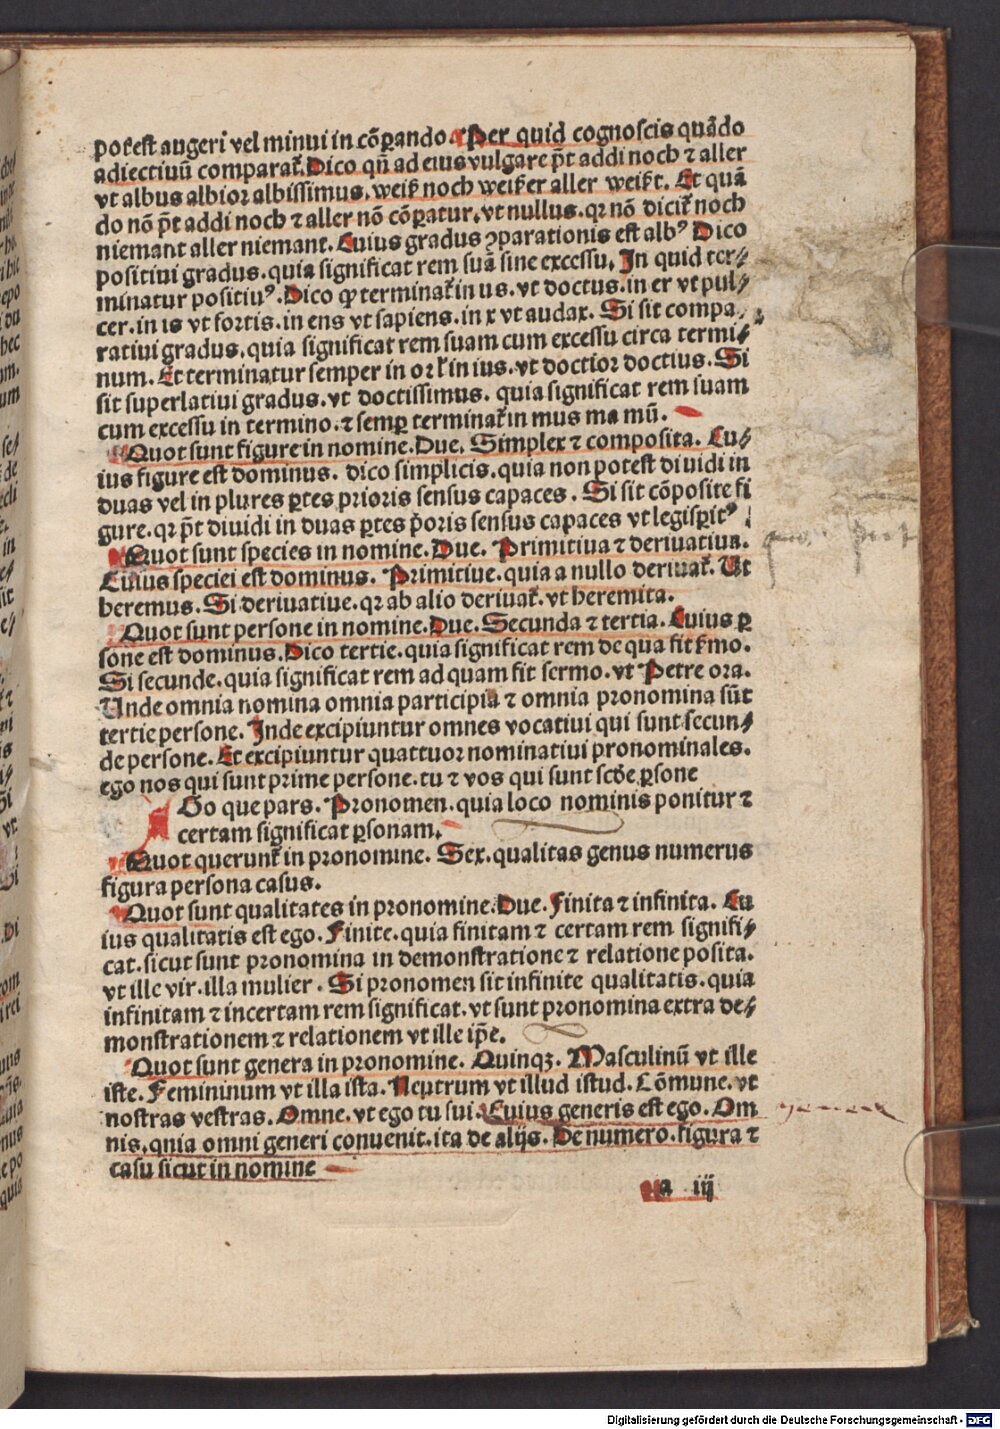 poteſt augeri vel minui in cõꝑando. Per quid cognoſcis quãdo
adiectiuũ comparat᷑. Dico qñ ad eius vulgare p̄t addi noch ⁊ aller
vt albus albior albiſſimus, weiß noch weißer aller weißt. Et quã
do nõ p̄t addi noch ⁊ aller nõ cõꝑatur, vt nullus. qꝛ nõ dicit᷑ noch
niemant aller niemant. Cuius gradus ꝯparationis eſt albꝰ Dico
poſitiui gradus. quia ſignificat rem ſuã ſine exceſſu, In quid ter⸗
minatur poſitiuꝰ. Dico ꝙ terminat᷑ in us. vt doctus. in er vt pul⸗
cer. in is vt fortis. in ens vt ſapiens. in x vt audax. Si ſit compa⸗
ratiui gradus. quia ſignificat rem ſuam cum exceſſu circa termi⸗
num. Et terminatur ſemper in or ł in ius. vt doctior doctius. Si
ſit ſuperlatiui gradus. vt doctiſſimus. quia ſignificat rem ſuam
cum exceſſu in termino. ⁊ ſemꝑ terminat᷑ in mus ma mũ.
Quot ſunt figure in nomine. Due. Simplex ⁊ compoſita. Cu⸗
ius figure eſt dominus. dico ſimplicis. quia non poteſt diuidi in
duas vel in plures ꝑtes prioris ſenſus capaces. Si ſit cõpoſite fi
gure. qꝛ p̄t diuidi in duas ꝑtes p̓oris ſenſus capaces vt legiſꝑitꝰ
Quot ſunt ſpecies in nomine. Due. Primitiua ⁊ deriuatiua.
Cuius ſpeciei eſt dominus. Primitiue. quia a nullo deriuat᷑. Ut
heremus. Si deriuatiue. qꝛ ab alio deriuat᷑. vt heremita.
Quot ſunt perſone in nomine. Due. Secunda ⁊ tertia. Cuius ꝑ
ſone eſt dominus. Dico tertie. quia ſignificat rem de qua fit ẜmo.
Si ſecunde. quia ſignificat rem ad quam fit ſermo. vt Petre ora.
Unde omnia nomina omnia participia ⁊ omnia pronomina ſũt
tertie perſone. Inde excipiuntur omnes vocatiui qui ſunt ſecun⸗
de perſone. Et excipiuntur quattuor nominatiui pronominales.
ego nos qui ſunt prime perſone. tu ⁊ vos qui ſunt ſcd̄e ꝑſone
Go que pars. Pronomen. quia loco nominis ponitur ⁊
certam ſignificat ꝑſonam.
Quot querunt᷑ in pronomine. Sex. qualitas genus numerus
figura perſona caſus.
Quot ſunt qualitates in pronomine. Due. Finita ⁊ infinita. Cu
ius qualitatis eſt ego. Finite. quia finitam ⁊ certam rem ſignifi⸗
cat. ſicut ſunt pronomina in demonſtratione ⁊ relatione poſita.
vt ille vir. illa mulier. Si pronomen ſit infinite qualitatis. quia
infinitam ⁊ incertam rem ſignificat. vt ſunt pronomina extra de⸗
monſtrationem ⁊ relationem vt ille ip̄e.
Quot ſunt genera in pronomine. Quinqꝫ. Maſculinũ vt ille
iſte. Femininum vt illa iſta. Neutrum vt illud iſtud. Cõmune. vt
noſtras veſtras. Omne. vt ego tu ſui. Cuius generis eſt ego. Om
nis, quia omni generi conuenit. ita de alijs. De numero. figura ⁊
caſu ſicut in nomine
a iij
Digitalisierung gefördert durch die Deutsche Forschungsgemeinschaft - DFG